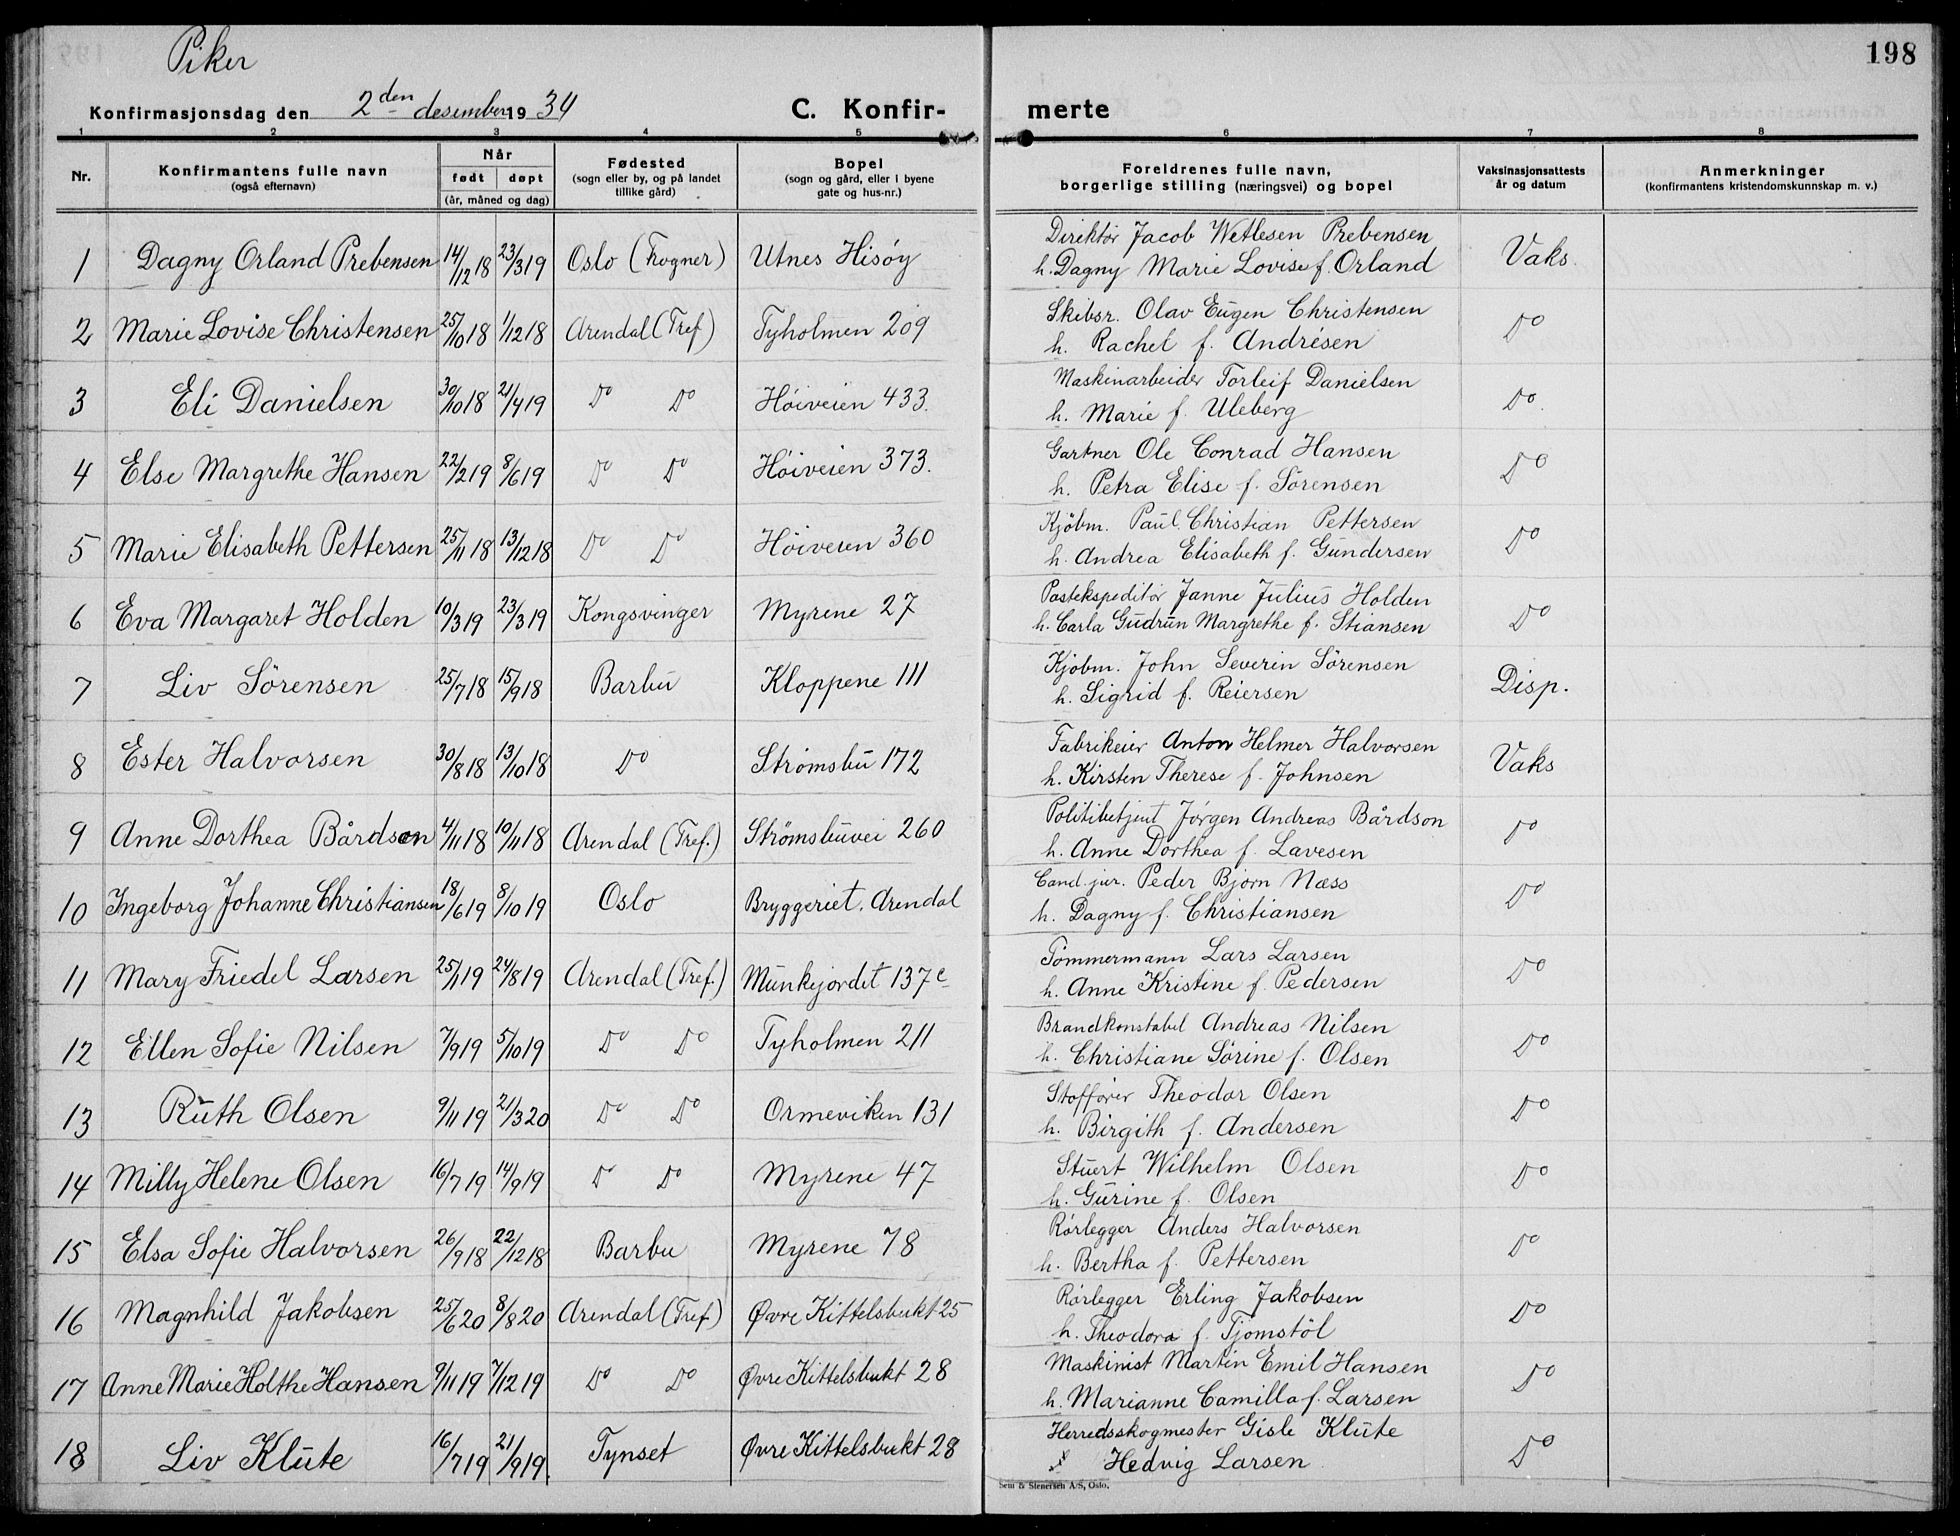 Piker
198
Konfirmasjonsdag den 2den desember 1934
C. Konfir-
merte
1 2 3 4 5 6 7 8
Nr.
Konfirmantens fulle navn
(også efternavn)
Når
født døpt
(år, måned og dag)
Fødested
(sogn eller by, og på landet
tillike gård)
Bopel
(sogn og gård, eller i byene
gate og hus-nr.)
Foreldrenes fulle navn,
borgerlige stilling (næringsvei) og bopel
Vaksinasjonsattests
år og datum
Anmerkninger
(konfirmantens kristendomskunnskap m. v.)
1 Dagny Orland Prebensen 14/12 18 23/3 19 Oslo (Frogner) Utnes Hisøy Direktør Jacob Wetlesen Prebensen
h. Dagny Marie Lovise f. Orland Vaks.
2 Marie Lovise Christensen 25/10 18 1/12 18 Arendal (Tref.) Tyholmen 209 Skibsr. Olav Eugen Christensen
h. Rachel f. Andrésen Do
3 Eli Danielsen 30/10 18 21/4 19 Do Do Høiveien 433. Maskinarbeider Torleif Danielsen
h. Marie f. Uleberg Do.
4 Else Margrethe Hansen 22/2 19 8/6 19 Do Do Høiveien 373. Gartner Ole Conrad Hansen
h. Petra Elise f. Sörensen Do
5 Marie Elisabeth Pettersen 25/11 18 13/12 18 Do Do Høiveien 360 Kjøbm. Paul Christian Pettersen
h. Andrea Elisabeth f. Gundersen Do
6 Eva Margaret Holden 10/3 19 23/3 19 Kongsvinger Myrene 27 Postekspeditør Janne Julius Holden
h. Carla Gudrun Margrethe f. Stiansen Do
7 Liv Sörensen 25/7 18 15/9 18 Barbu Kloppene 111 Kjøbm. John Severin Sörensen
h. Sigrid f. Reiersen Disp.
8 Ester Halvorsen 30/8 18 13/10 18 Do Strømsbu 172 Fabrikeier Anton Helmer Halvorsen
h. Kirsten Therese f. Johnsen Vaks
9 Anne Dorthea Bårdson 4/11 18 10/11 18 Arendal (Tref.) Strømsbuvei 260 Politibetjent Jørgen Andreas Bårdson
h. Anne Dorthea f. Lavesen Do
10 Ingeborg Johanne Christiansen 18/6 19 8/10 19 Oslo Bryggeriet. Arendal Cand. jur. Peder Bjørn Næss
h. Dagny f. Christiansen Do
11 Mary Friedel Larsen 25/1 19 24/8 19 Arendal (Tref.) Munkejordet 137c Tömmermann Lars Larsen
h. Anne Kristine f. Pedersen Do
12 Ellen Sofie Nilsen 7/9 19 5/10 19 Do Do Tyholmen 211 Brandkonstabel Andreas Nilsen
h. Christiane Sørine f. Olsen Do
13 Ruth Olsen 9/11 19 21/3 20 Do Do Ormeviken 131 Stoffører Theodor Olsen
h. Birgith f. Andersen Do
14 Milly Helene Olsen 16/7 19 14/9 19 Do Do Myrene 47 Stuert Wilhelm Olsen
h. Gurine f. Olsen Do
15 Elsa Sofie Halvorsen 26/9 18 22/12 18 Barbu Myrene 78 Rörlegger Anders Halvorsen
h. Bertha f. Pettersen Do
16 Magnhild Jakobsen 25/6 20 8/8 20 Arendal (Tref) Øvre Kittelsbukt 25 Rørlegger Erling Jakobsen
h. Theodora f. Tjomstöl Do
17 Anne Marie Holthe Hansen 9/11 19 7/12 19 Do Do Øvre Kittelsbukt 28 Maskinist Martin Emil Hansen
h. Marianne Camilla f. Larsen Do
18 Liv Klute 16/7 19 21/9 19. Tynset Øvre Kittelsbukt 28 Herredsskogmester Gisle Klute
Hedvig Larsen Do
Sem & Stenersen A/S, Oslo.